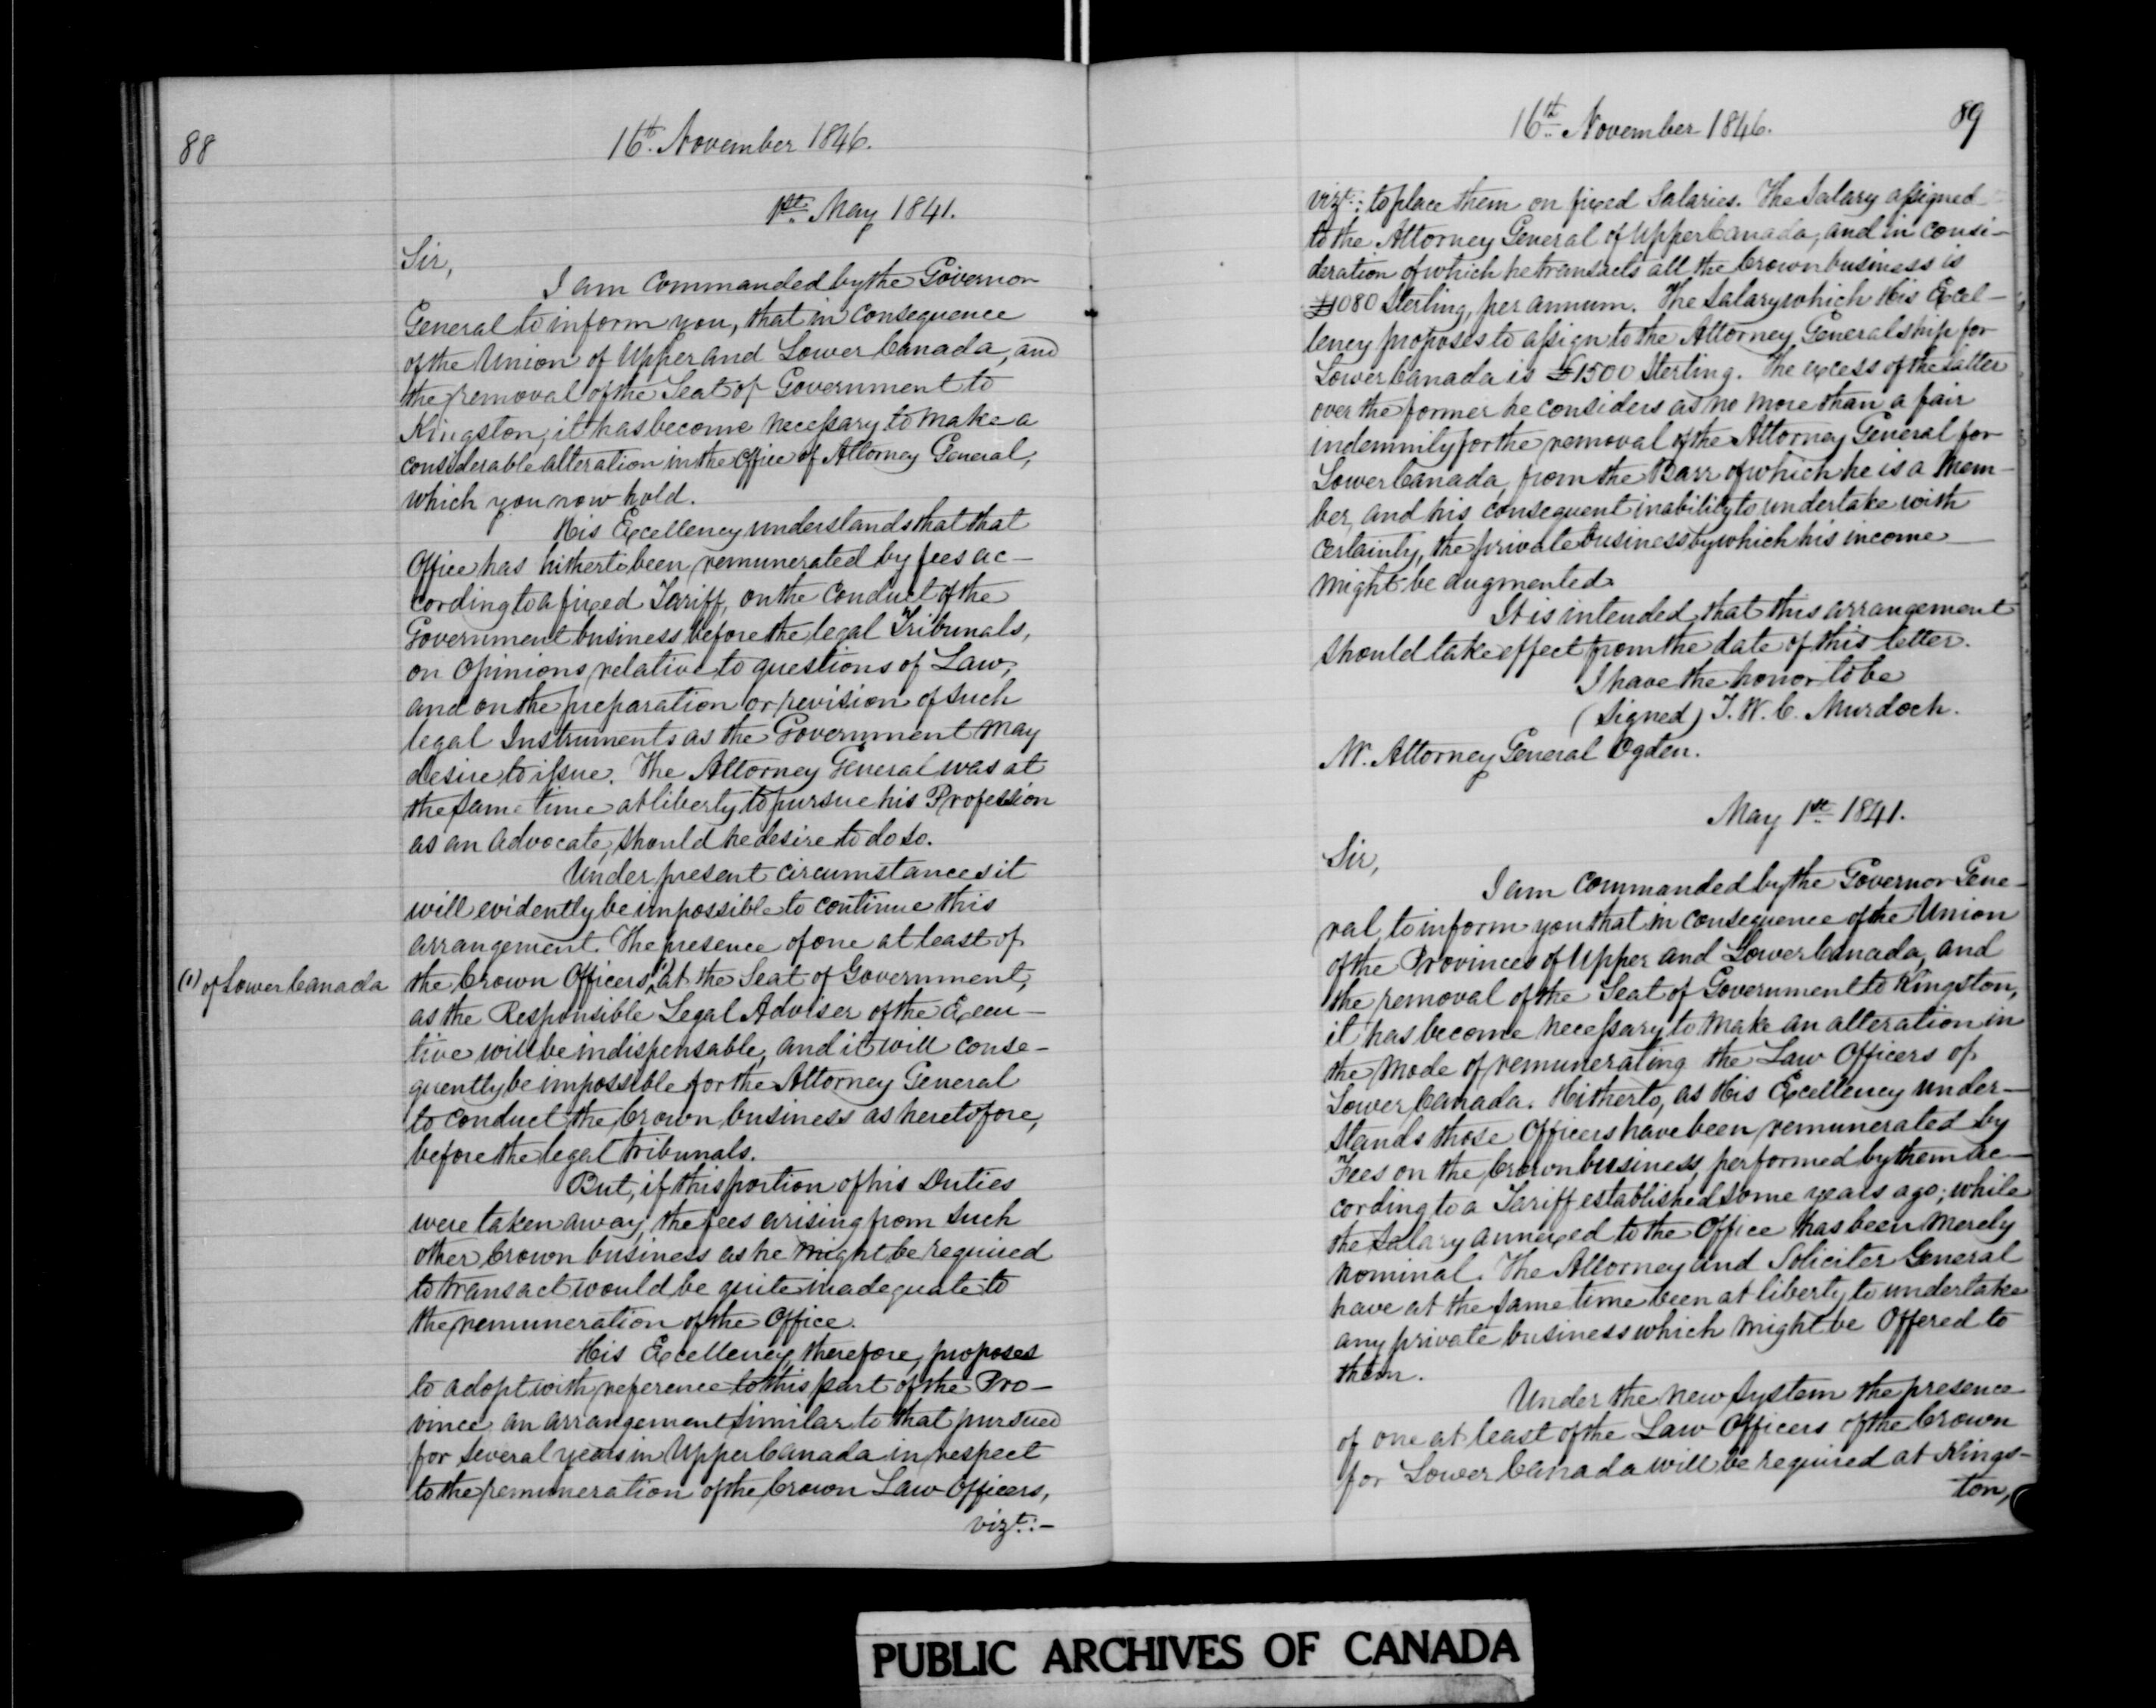 88
16th. November 1846.
1st. May 1841.
Sir,
I am commanded by the Governor
General to inform you, that in consequence
of the Union of Upper and Lower Canada, and
the removal of the Seat of Government to
Kingston, it has become necessary to make a
considerable alteration in the Office of Attorney General,
which you now hold.
His Excellency understands that that
Office has hitherto been remunerated by fees ac-
cording to a fixed Tariff, on the conduct of the
Government business before the legal Tribunals,
on Opinions relative to questions of Law,
and on the preparation or revision of such
legal Instruments as the Government may
desire to issue. The Attorney General was at
the same time at liberty to pursue his Profession
as an Advocate, should he desire to do so.
Under present circumstances it
will evidently be impossible to continue this
arrangement. The presence of one at least of
the Crown Officers (1) at the Seat of Government,
(1) of Lower Canada
as the Responsible Legal Adviser of the Execu-
tive will be indispensable, and it will conse-
quently be impossible for the Attorney General
to conduct the Crown business as heretofore,
before the legal tribunals.
But, if this portion of his Duties
were taken away, the fees arising from such
other Crown business as he might be required
to transact would be quite inadequate to
the remuneration of the Office.
His Excellency, therefore, proposes
to adopt with reference to this part of the Pro-
vince an arrangement similar to that pursued
for several years in Upper Canada in respect
to the remuneration of the Crown Law Officers,
vizt:-
16th. November 1846.
89
vizt: to place them on fixed Salaries. The Salary assigned
to the Attorney General of Upper Canada, and in consi-
deration of which he transacts all the Crown business is
£1080 Sterling, per annum. The Salary which His Excel-
lency proposes to assign to the Attorney Generalship for
Lower Canada is £1500 Sterling. The excess of the latter
over the former he considers as no more than a fair
indemnity for the removal of the Attorney General for
Lower Canada, from the Barr of which he is a Mem-
ber, and his consequent inability to undertake with
certainty, the private business by which his income
might be augmented.
It is intended, that this arrangement
should take effect from the date of this letter.
I have the honor to be
(Signed) T. W. C. Murdoch.
Mr. Attorney General Ogden.
May 1st. 1841.
Sir,
I am commanded by the Governor Gene-
ral, to inform you that in consequence of the Union
of the Provinces of Upper and Lower Canada, and
the removal of the Seat of Government to Kingston,
it has become necessary to make an alteration in
the mode of remunerating the Law Officers of
Lower Canada. Hitherto, as His Excellency under-
stands those Officers have been remunerated by
Fees on the Crown business performed by them ac-
cording to a Tariff established some years ago; while
the Salary annexed to the Office has been merely
nominal. The Attorney and Soliciter General
have at the same time been at liberty to undertake
any private business which might be Offered to
them.
Under the new System the presence
of one at least of the Law Officers of the Crown
for Lower Canada will be required at Kings-
ton,
PUBLIC ARCHIVES OF CANADA